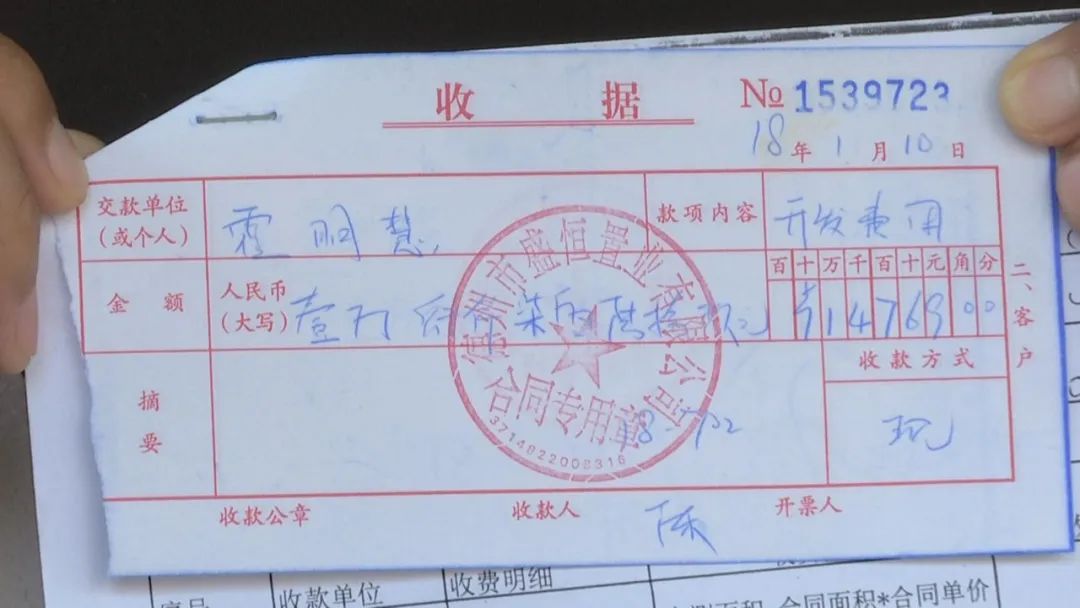 收 据
№ 1539723
18 年 1 月 10 日
交款单位
(或个人)
霍明慧
款项内容
开发费用
金 额
人民币
(大写)
百 十 万 千 百 十 元 角 分
14769 00
收款方式
现
摘
要
二、客户
德州市盛恒置业有限公司
合同专用章
3714822008316
收款公章
收款人
开票人
收款单位
收费明细
合同面积*合同单价